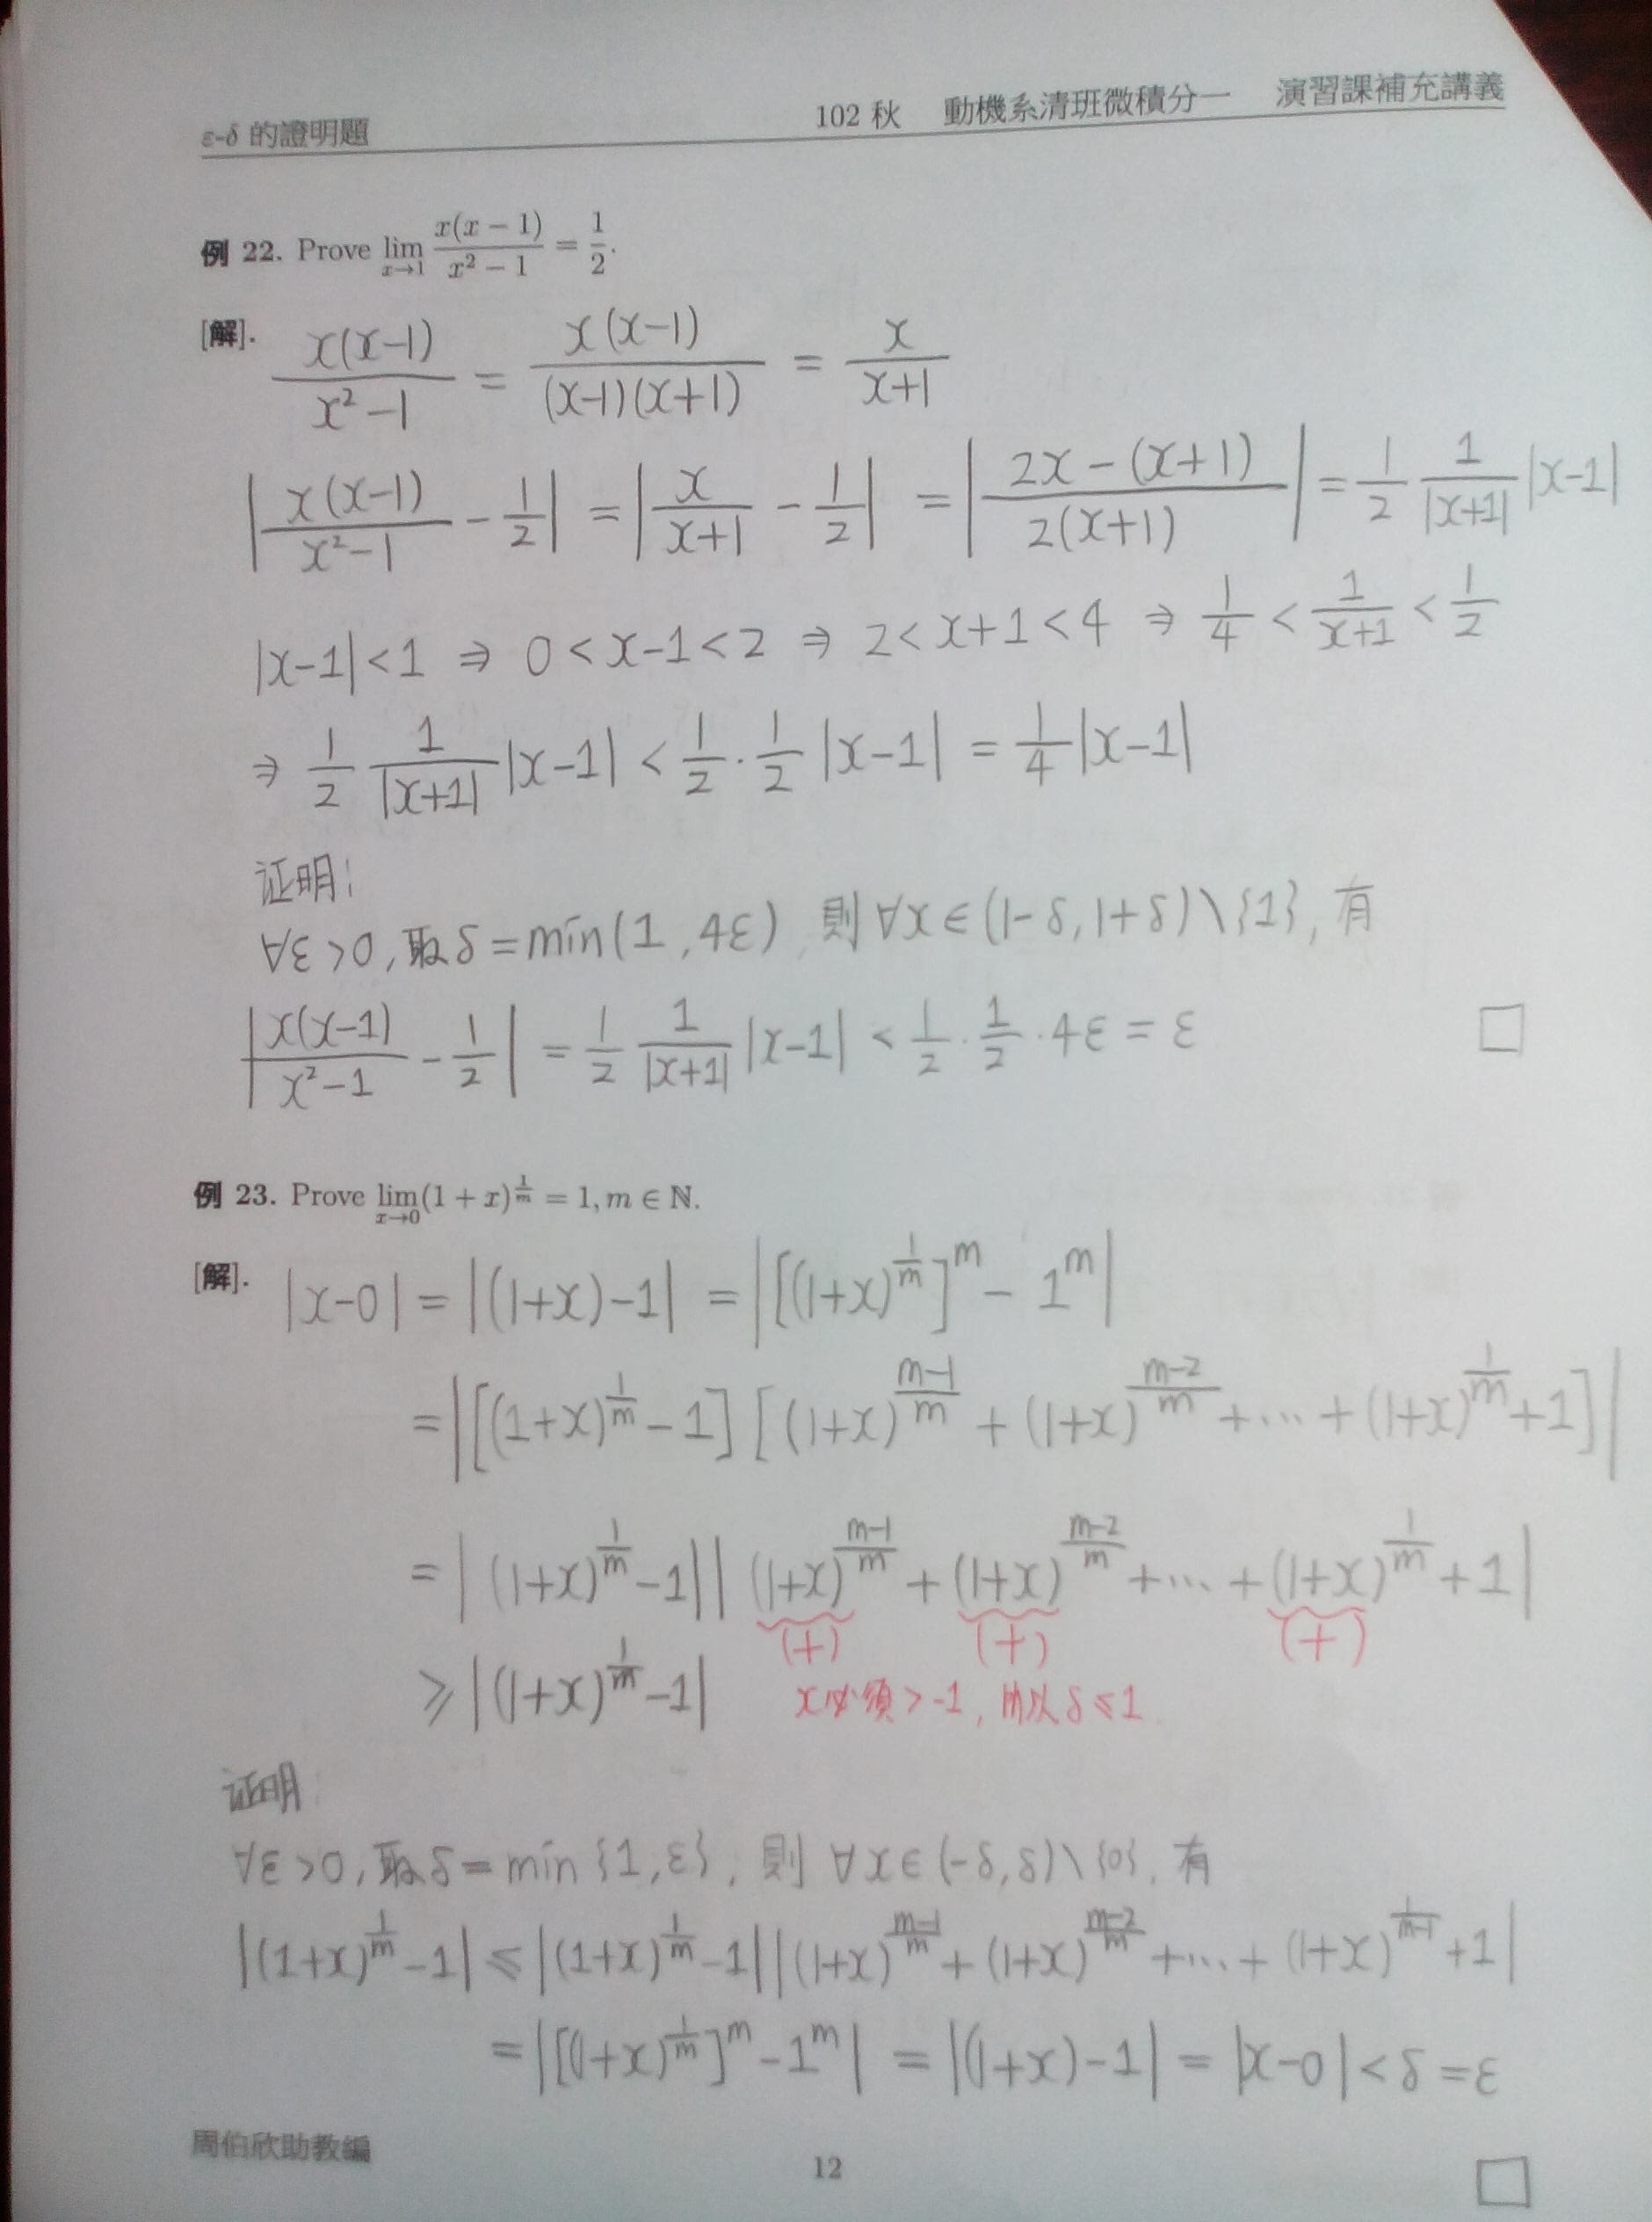 ε-δ 的證明題 102 秋 動機系清班微積分一 演習課補充講義
例 22. Prove lim_{x→1} x(x − 1)/(x² − 1) = 1/2.
[解]. x(x-1)/(x²-1) = x(x-1)/((x-1)(x+1)) = x/(x+1)
|x(x-1)/(x²-1) - 1/2| = |x/(x+1) - 1/2| = |(2x-(x+1))/(2(x+1))| = 1/2 1/|x+1| |x-1|
|x-1|<1 ⇒ 0<x-1<2 ⇒ 2<x+1<4 ⇒ 1/4 < 1/(x+1) < 1/2
⇒ 1/2 1/|x+1| |x-1| < 1/2 · 1/2 |x-1| = 1/4 |x-1|
证明:
∀ε>0, 取δ=min(1, 4ε), 則 ∀x∈(1-δ, 1+δ)\{1}, 有
|x(x-1)/(x²-1) - 1/2| = 1/2 1/|x+1| |x-1| < 1/2 · 1/2 · 4ε = ε □
例 23. Prove lim_{x→0} (1 + x)^{1/m} = 1, m ∈ ℕ.
[解]. |x-0| = |(1+x)-1| = |[(1+x)^{1/m}]^m - 1^m|
= |[(1+x)^{1/m} - 1] [(1+x)^{(m-1)/m} + (1+x)^{(m-2)/m} + ⋯ + (1+x)^{1/m} + 1]|
= |(1+x)^{1/m} - 1| |(1+x)^{(m-1)/m} + (1+x)^{(m-2)/m} + ⋯ + (1+x)^{1/m} + 1|
(+) (+) (+)
≥ |(1+x)^{1/m} - 1| x必須>-1, 所以δ≤1
证明
∀ε>0, 取δ=min{1, ε}, 則 ∀x∈(-δ, δ)\{0}, 有
|(1+x)^{1/m} - 1| ≤ |(1+x)^{1/m} - 1| |(1+x)^{(m-1)/m} + (1+x)^{(m-2)/m} + ⋯ + (1+x)^{1/(m-1)} + 1|
= |[(1+x)^{1/m}]^m - 1^m| = |(1+x)-1| = |x-0| < δ = ε
周伯欣助教編 12 □